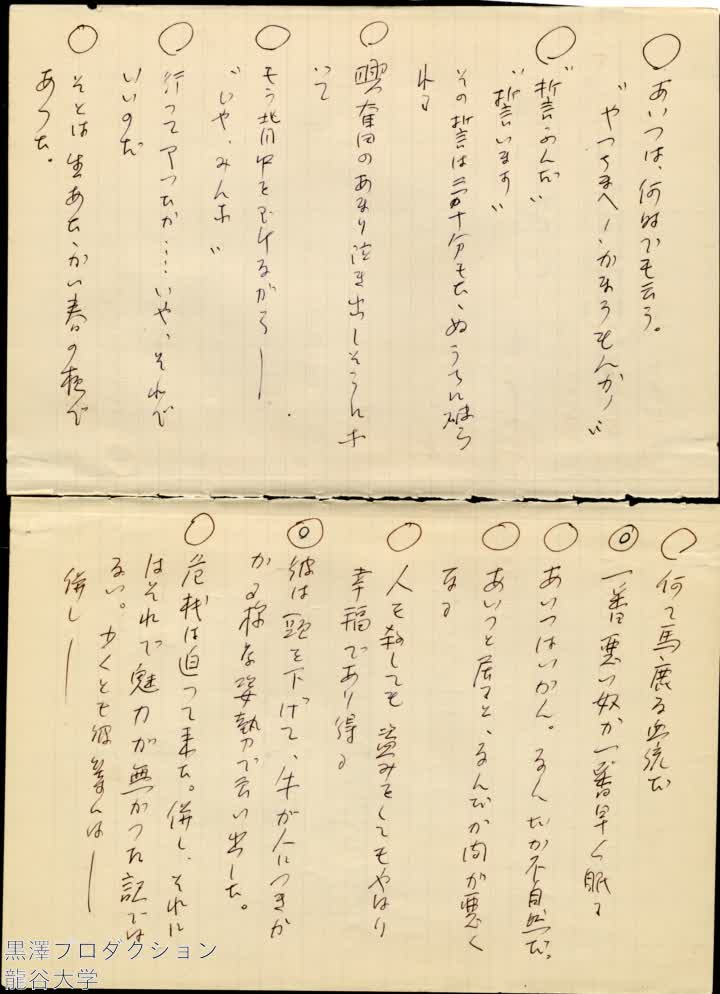 ○ あいつは、何時でも云う。
“やつちまへ！かまうもんか！”
○ “誓うんだ”
“誓います”
その誓は三十分もたゝぬうちに破ら
れる
○ 興奮のあまり泣き出しそうにな
つて
○ もう背中を向けながら──
“じや、みんな”
○ 行つてアつたか……いや、それで
いいのだ
○ そとは生あたゝかい春の夜で
あつた。
○ 何て馬鹿な血統だ
◎ 一番悪い奴が一番早く眠る
○ あいつはいかん。なんだか不自然だ。
○ あいつと居ると、なんだか間が悪く
なる
○ 人を殺しても盗みをしてもやはり
幸福であり得る
◎ 彼は頭を下げて、牛が人につきか
かる様な姿勢で云い出した。
○ 危機は迫つて来た。併し、それに
はそれで魅力が無かつた訳では
ない。少くとも彼等には──
併し──
黒澤プロダクション
龍谷大学